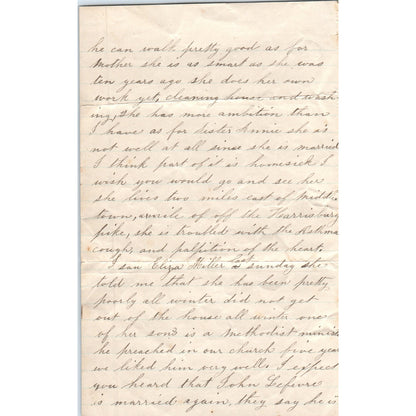 he can walk pretty good as for
Mother she is as smart as she was
ten years ago she does her own
work yet, cleaning house and wash
ing, She has more ambition than
I have as for sister Annie she is
not well at all since she is married
I think part of it is homesick I
wish you would go and see her
she lives two miles east of Middle
town, a mile of off the Harrisburg
pike, she is troubled with the Asthma
cough and palpition of the heart,
I saw Eliza Miller last sunday she
told me that she has been pretty
poorly all winter did not get
out of the house all winter one
of her sons is a Methodist minis
he preached in our church five years
we liked him very well, I expect
you heard that John Lefevre
is married again, they say he is